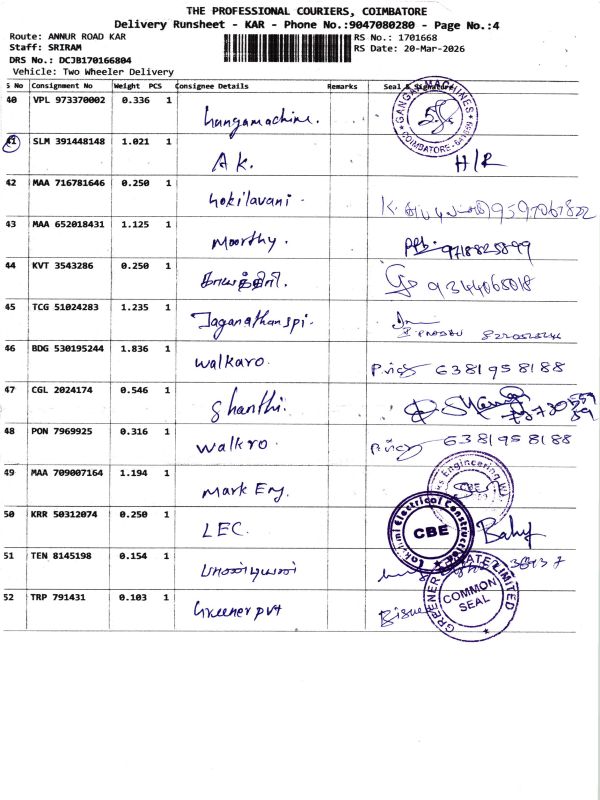 THE PROFESSIONAL COURIERS, COIMBATORE
Delivery Runsheet - KAR - Phone No.:9047080280 - Page No.:4
Route: ANNUR ROAD KAR RS No.: 1701668
Staff: SRIRAM RS Date: 20-Mar-2026
DRS No.: DCJB170166804
Vehicle: Two Wheeler Delivery
S No Consignment No Weight PCS Consignee Details Remarks Seal & Signature
40 VPL 973370002 0.336 1 GANGA MACHINES COIMBATORE
41 SLM 391448148 1.021 1 AK. H/R
42 MAA 716781646 0.250 1 Kokilavani. 9597067822
43 MAA 652018431 1.125 1 Moorthy. 9718825899
44 KVT 3543286 0.250 1 காயத்திரி. 9344065018
45 TCG 51024283 1.235 1 Jaganathanspi.
46 BDG 530195244 1.836 1 Walkaro. 6381958188
47 CGL 2024174 0.546 1 Shanthi.
48 PON 7969925 0.316 1 Walkro. 6381958188
49 MAA 709007164 1.194 1 Mark Eng. Engineering CBE
50 KRR 50312074 0.250 1 LEC. Lakshmi Electrical Construction CBE
51 TEN 8145198 0.154 1 பாண்டியன்
52 TRP 791431 0.103 1 Greener pvt GREENER PRIVATE LIMITED COMMON SEAL